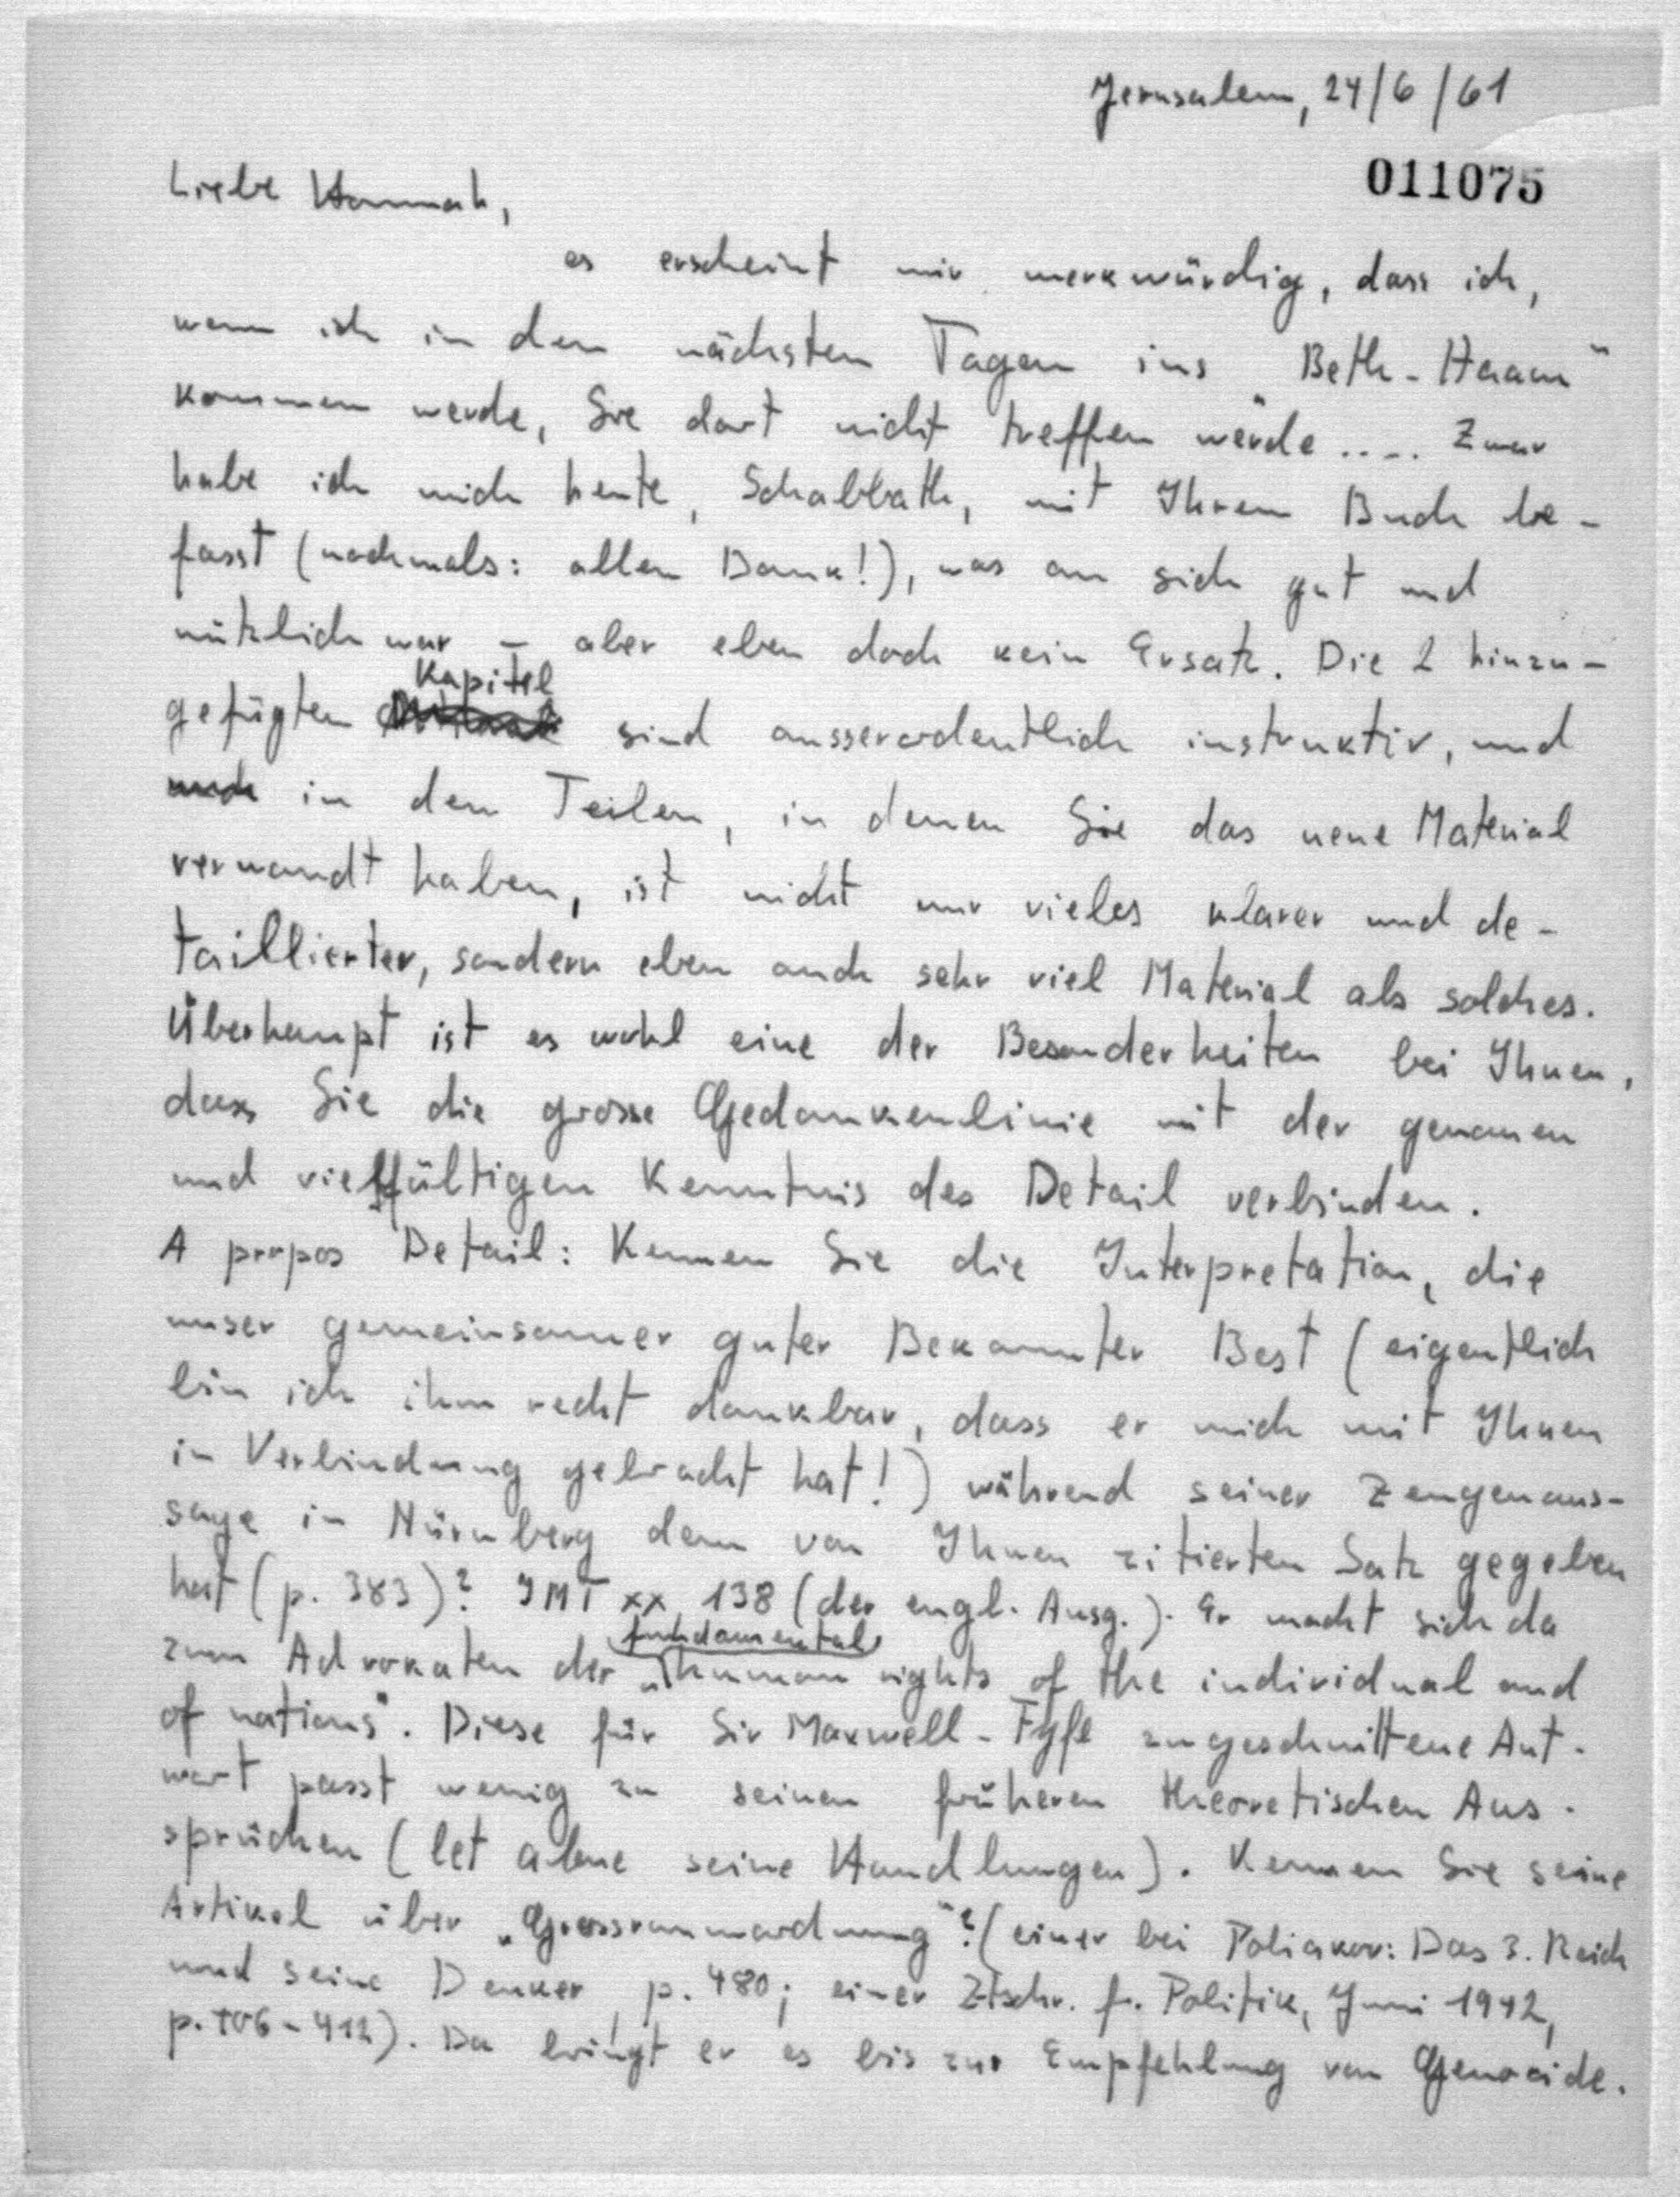 Jerusalem, 24/6/61
011075
Liebe Hannah,
es erscheint mir merkwürdig, dass ich,
wenn ich in den nächsten Tagen ins "Beth-Haam"
kommen werde, Sie dort nicht treffen werde .... Zwar
habe ich mich heute, Schabbath, mit Ihrem Buch be-
fasst (nochmals: allen Dank!), was an sich gut und
nützlich war - aber eben doch kein Ersatz. Die 2 hinzu-
gefügten Kapitel sind ausserordentlich instruktiv, und
in den Teilen, in denen Sie das neue Material
verwandt haben, ist nicht nur vieles klarer und de-
taillierter, sondern eben auch sehr viel Material als solches.
Überhaupt ist es wohl eine der Besonderheiten bei Ihnen,
dass Sie die grosse Gedankenlinie mit der genauen
und vielfältigen Kenntnis des Detail verbinden.
A propos Detail: Kennen Sie die Interpretation, die
unser gemeinsamer guter Bekannter Best (eigentlich
bin ich ihm recht dankbar, dass er mich mit Ihnen
in Verbindung gebracht hat!) während seiner Zeugenaus-
sage in Nürnberg dem von Ihnen zitierten Satz gegeben
hat (p. 383)? IMT XX 138 (der engl. Ausg.). Er macht sich da
zum Advokaten der „fundamental human rights of the individual and
of nations". Diese für Sir Maxwell-Fyfe zugeschnittene Ant-
wort passt wenig zu seinen früheren theoretischen Aus-
sprüchen (let alone seine Handlungen). Kennen Sie seine
Artikel über „Grossraumordnung"? (einer bei Poliakov: Das 3. Reich
und seine Denker, p. 480; einer Ztschr. f. Politik, Juni 1942,
p. 406-412). Da bringt er es bis zur Empfehlung von Genocide.